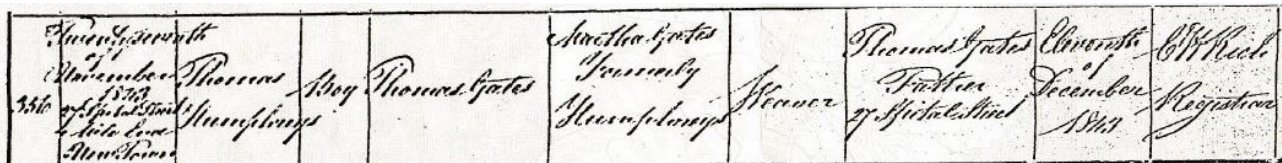 Twenty seventh
of
November
1843
27 Spital Street
Mile End
New Town
Thomas
Humphreys
Boy
Thomas Gates
Martha Gates
Formerly
Humphreys
Weaver
Thomas Gates
Father
27 Spital Street
Eleventh
of
December
1843
Registrar